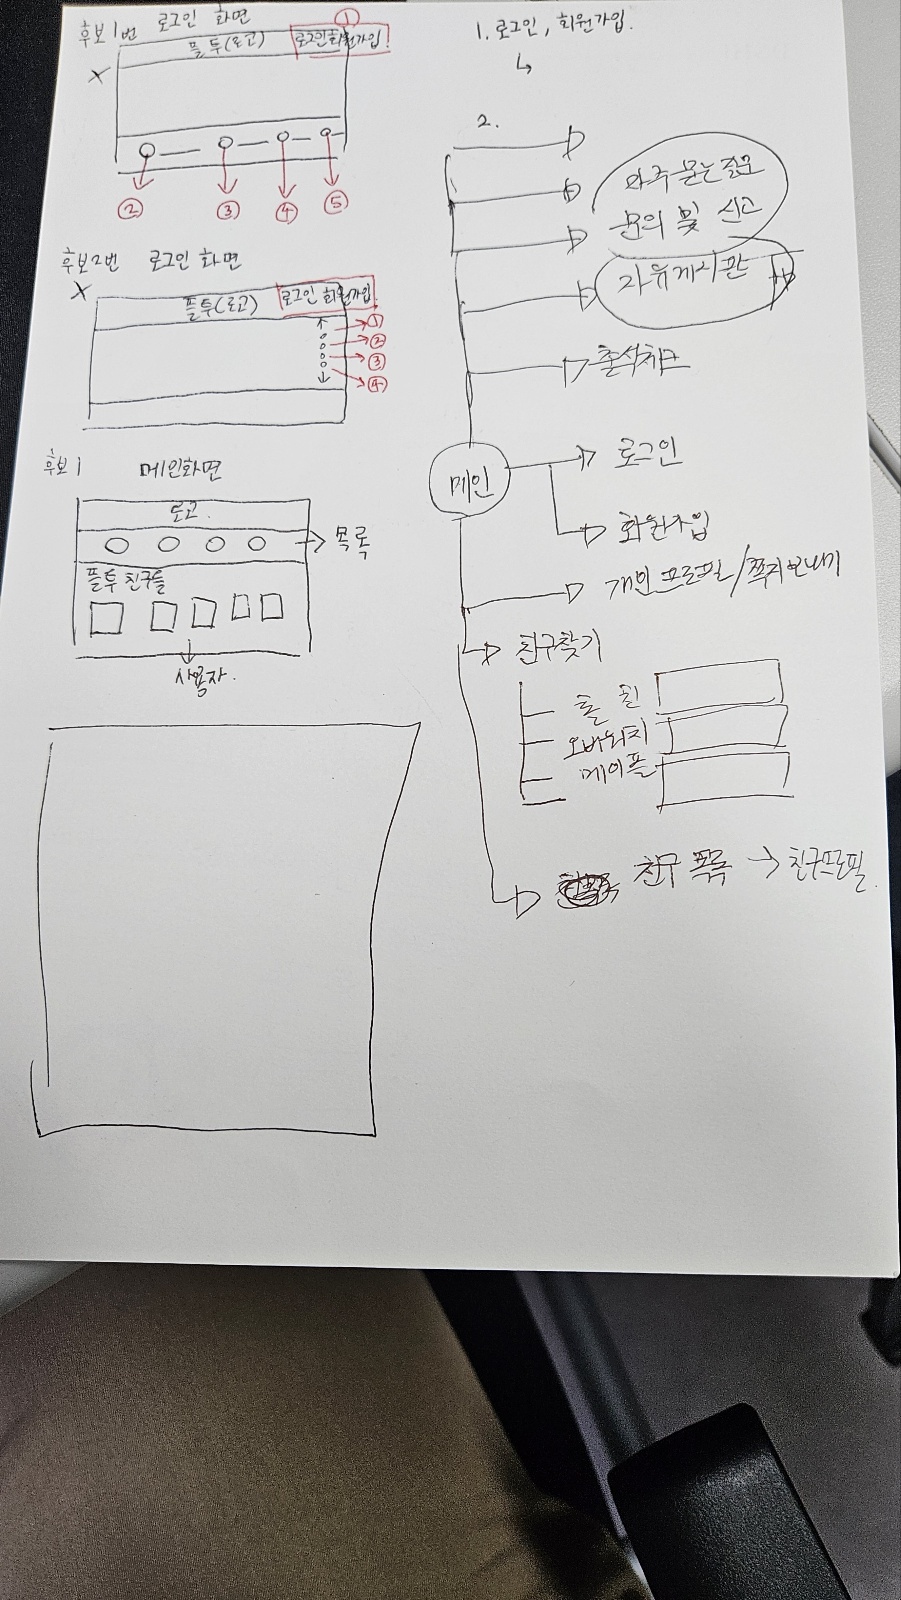 후보1번 로그인 화면
①
플투(로고) 로그인 회원가입
X
② ③ ④ ⑤
후보2번 로그인 화면
X
플투(로고) 로그인 회원가입
①
②
③
④
후보1 메인화면
로고.
목록
플투 친구들
사용자.
1. 로그인, 회원가입.
2.
자주 묻는 질문
문의 및 신고
자유게시판
출석체크
메인
로그인
회원가입
개인 프로필/쪽지보내기
친구찾기
오버워치
메이플
친구 목록 → 친구프로필.